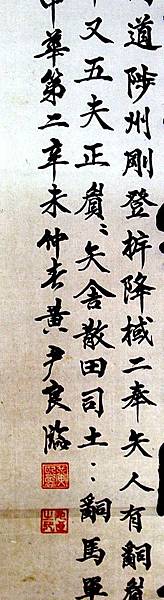 道陟州剛登柝降棫二奉夨人有嗣
又五夫正眉〻夨舍散田司土〻嗣馬單
中華第二辛未仲春黃尹良臨